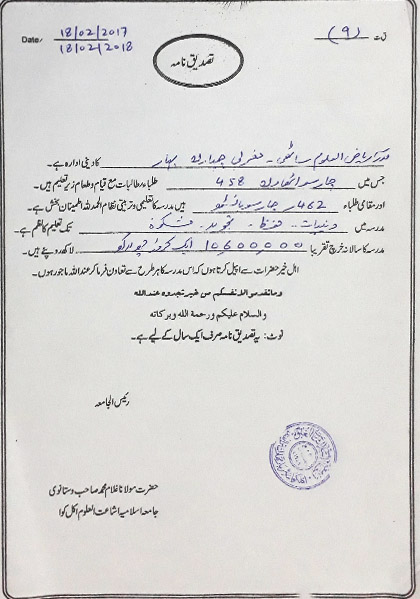 Date/ 18/02/2017 (۹)
18/02/2018
تصدیق نامہ
مدرسہ ریاض العلوم ساٹھی۔ مغربی چمپارن بہار کا دینی ادارہ ہے۔
جس میں چار سو اٹھاون 458 طلباء و طالبات مع قیام و طعام زیر تعلیم ہیں۔
اور مقامی طلباء 462 چار سو باسٹھ ہیں مدرسہ کا تعلیمی و تربیتی نظام الحمد للہ اطمینان بخش ہے۔
مدرسہ میں دینیات۔ حفظ۔ تجوید۔ مشکوٰۃ تک تعلیم کا نظم ہے۔
مدرسہ کا سالانہ خرچ تقریبا 10,600,000 ایک کروڑ چھ لاکھ لاکھ روپئے ہیں۔
اہل خیر حضرات سے اپیل کرتا ہوں کہ اس مدرسہ کا ہر طرح سے تعاون فرما کر عند اللہ ماجور ہوں۔
وما تقدموا لانفسکم من خیر تجدوہ عند اللہ
والسلام علیکم ورحمۃ اللہ وبرکاتہ
نوٹ: یہ تصدیق نامہ صرف ایک سال کے لیے ہے۔
رئیس الجامعہ
حضرت مولانا غلام محمد صاحب وستانوی
جامعہ اسلامیہ اشاعت العلوم اکل کوا